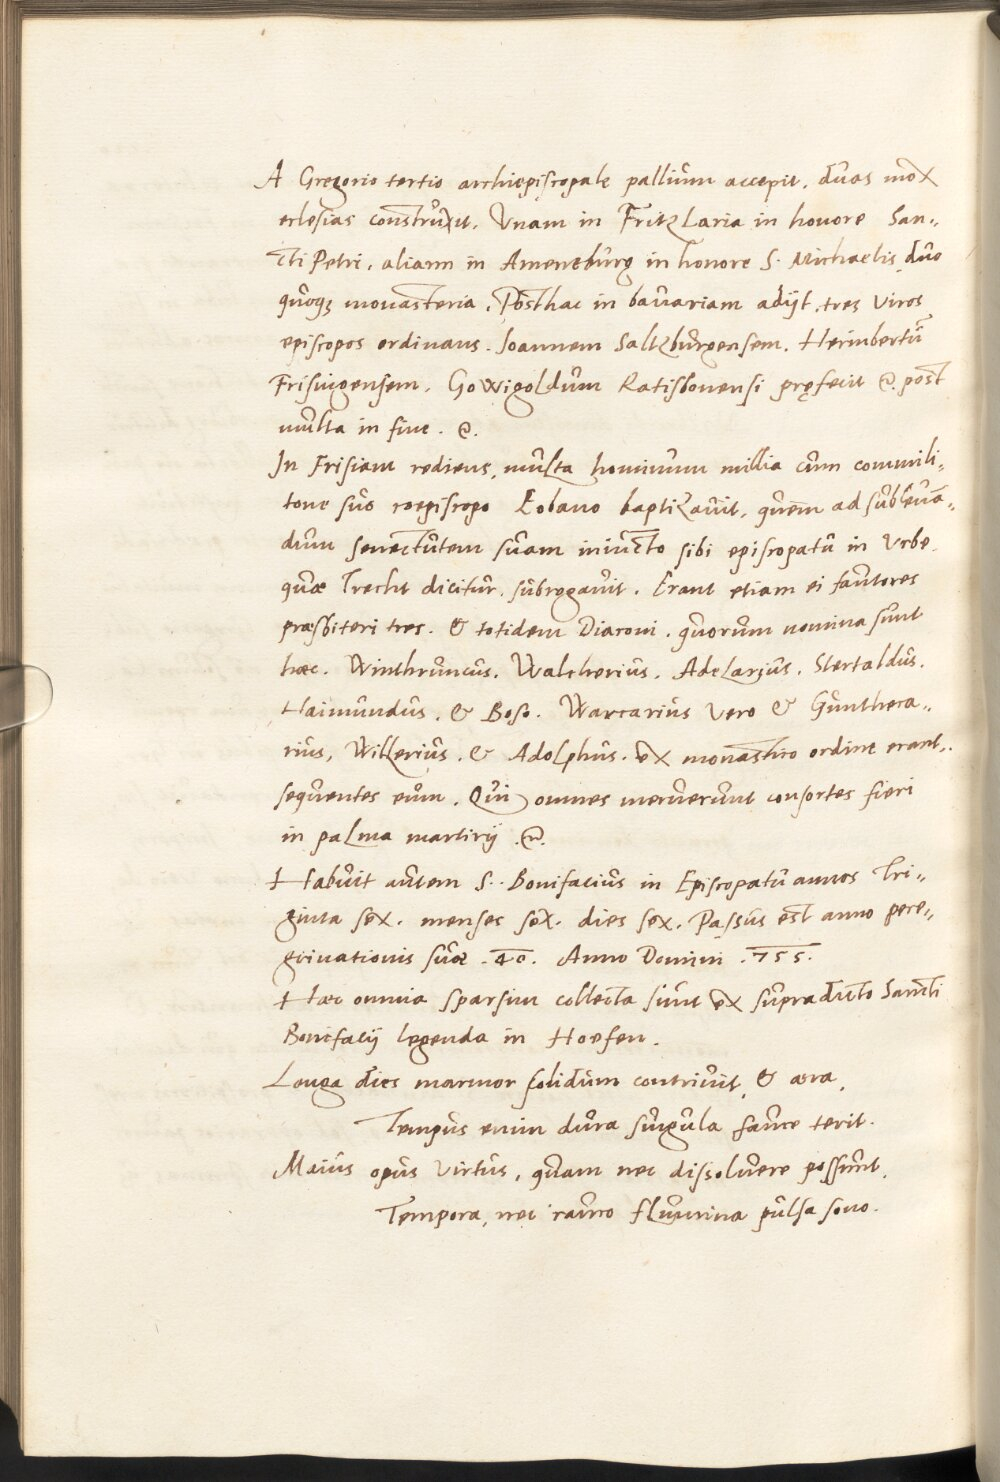 A Gregorio tertio archiepiscopale pallium accepit. duas mox
eclesias construxit. Unam in FritzLaria in honore San„
cti Petri, aliam in Ameneburg in honore S. Michaelis, duo
quoqꝫ monasteria. Posthac in bavariam adijt. tres viros
episcopos ordinans. Joannem Saltzburgensem. Herimbertū
Frisingensem. Gowigoldum Ratisbonensi pręfecit &. post
multa in fine. &.
In Frisiam rediens, multa hominum millia cum commili„
tone suo coepiscopo Eobano baptizavit, quem ad subleuā„
dum senectutem suam iniuncto sibi episcopatū in Urbe
quæ Trecht dicitur, subrogauit. Erant etiam ei fautores
præsbiteri tres. & totidem Diaconi. quorum nomina sunt
hæc. Winthruncus. Waltherius. Adelarius. Stertaldus.
Haimundus. & Boso. Warcarius vero & Gunthera„
rius, Willerius. & Adolphus. ex monastico ordine erant„.
sequentes eum. Qui omnes meruerunt consortes fieri
in palma martirij. &.
Habuit autem S. Bonifacius in Episcopatū annos Tri„
ginta sex. menses sex. dies sex. Passus est anno pere„
grinationis suæ .40. Anno Domini .755.
Hæc omnia sparsim collecta sunt ex supradicto Sancti
Bonifacij legenda in Hoefen.
Longa dies marmor solidum contriuit, & æra,
Tempus enim dura singula fauce terit.
Maius opus virtus, quam nec dissoluere possunt,
Tempora, nec rauco flumina pulsa sono.